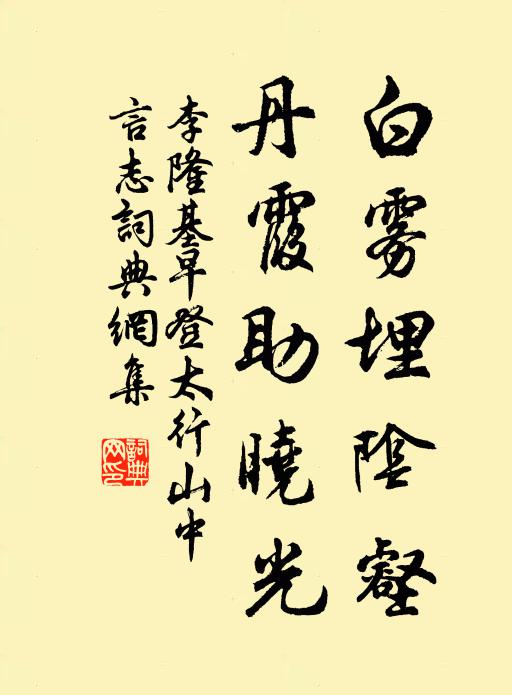 白雾埋陰壑
丹霞助曉光
李隆基早登太行山中
言志詞典網集
詞典網印